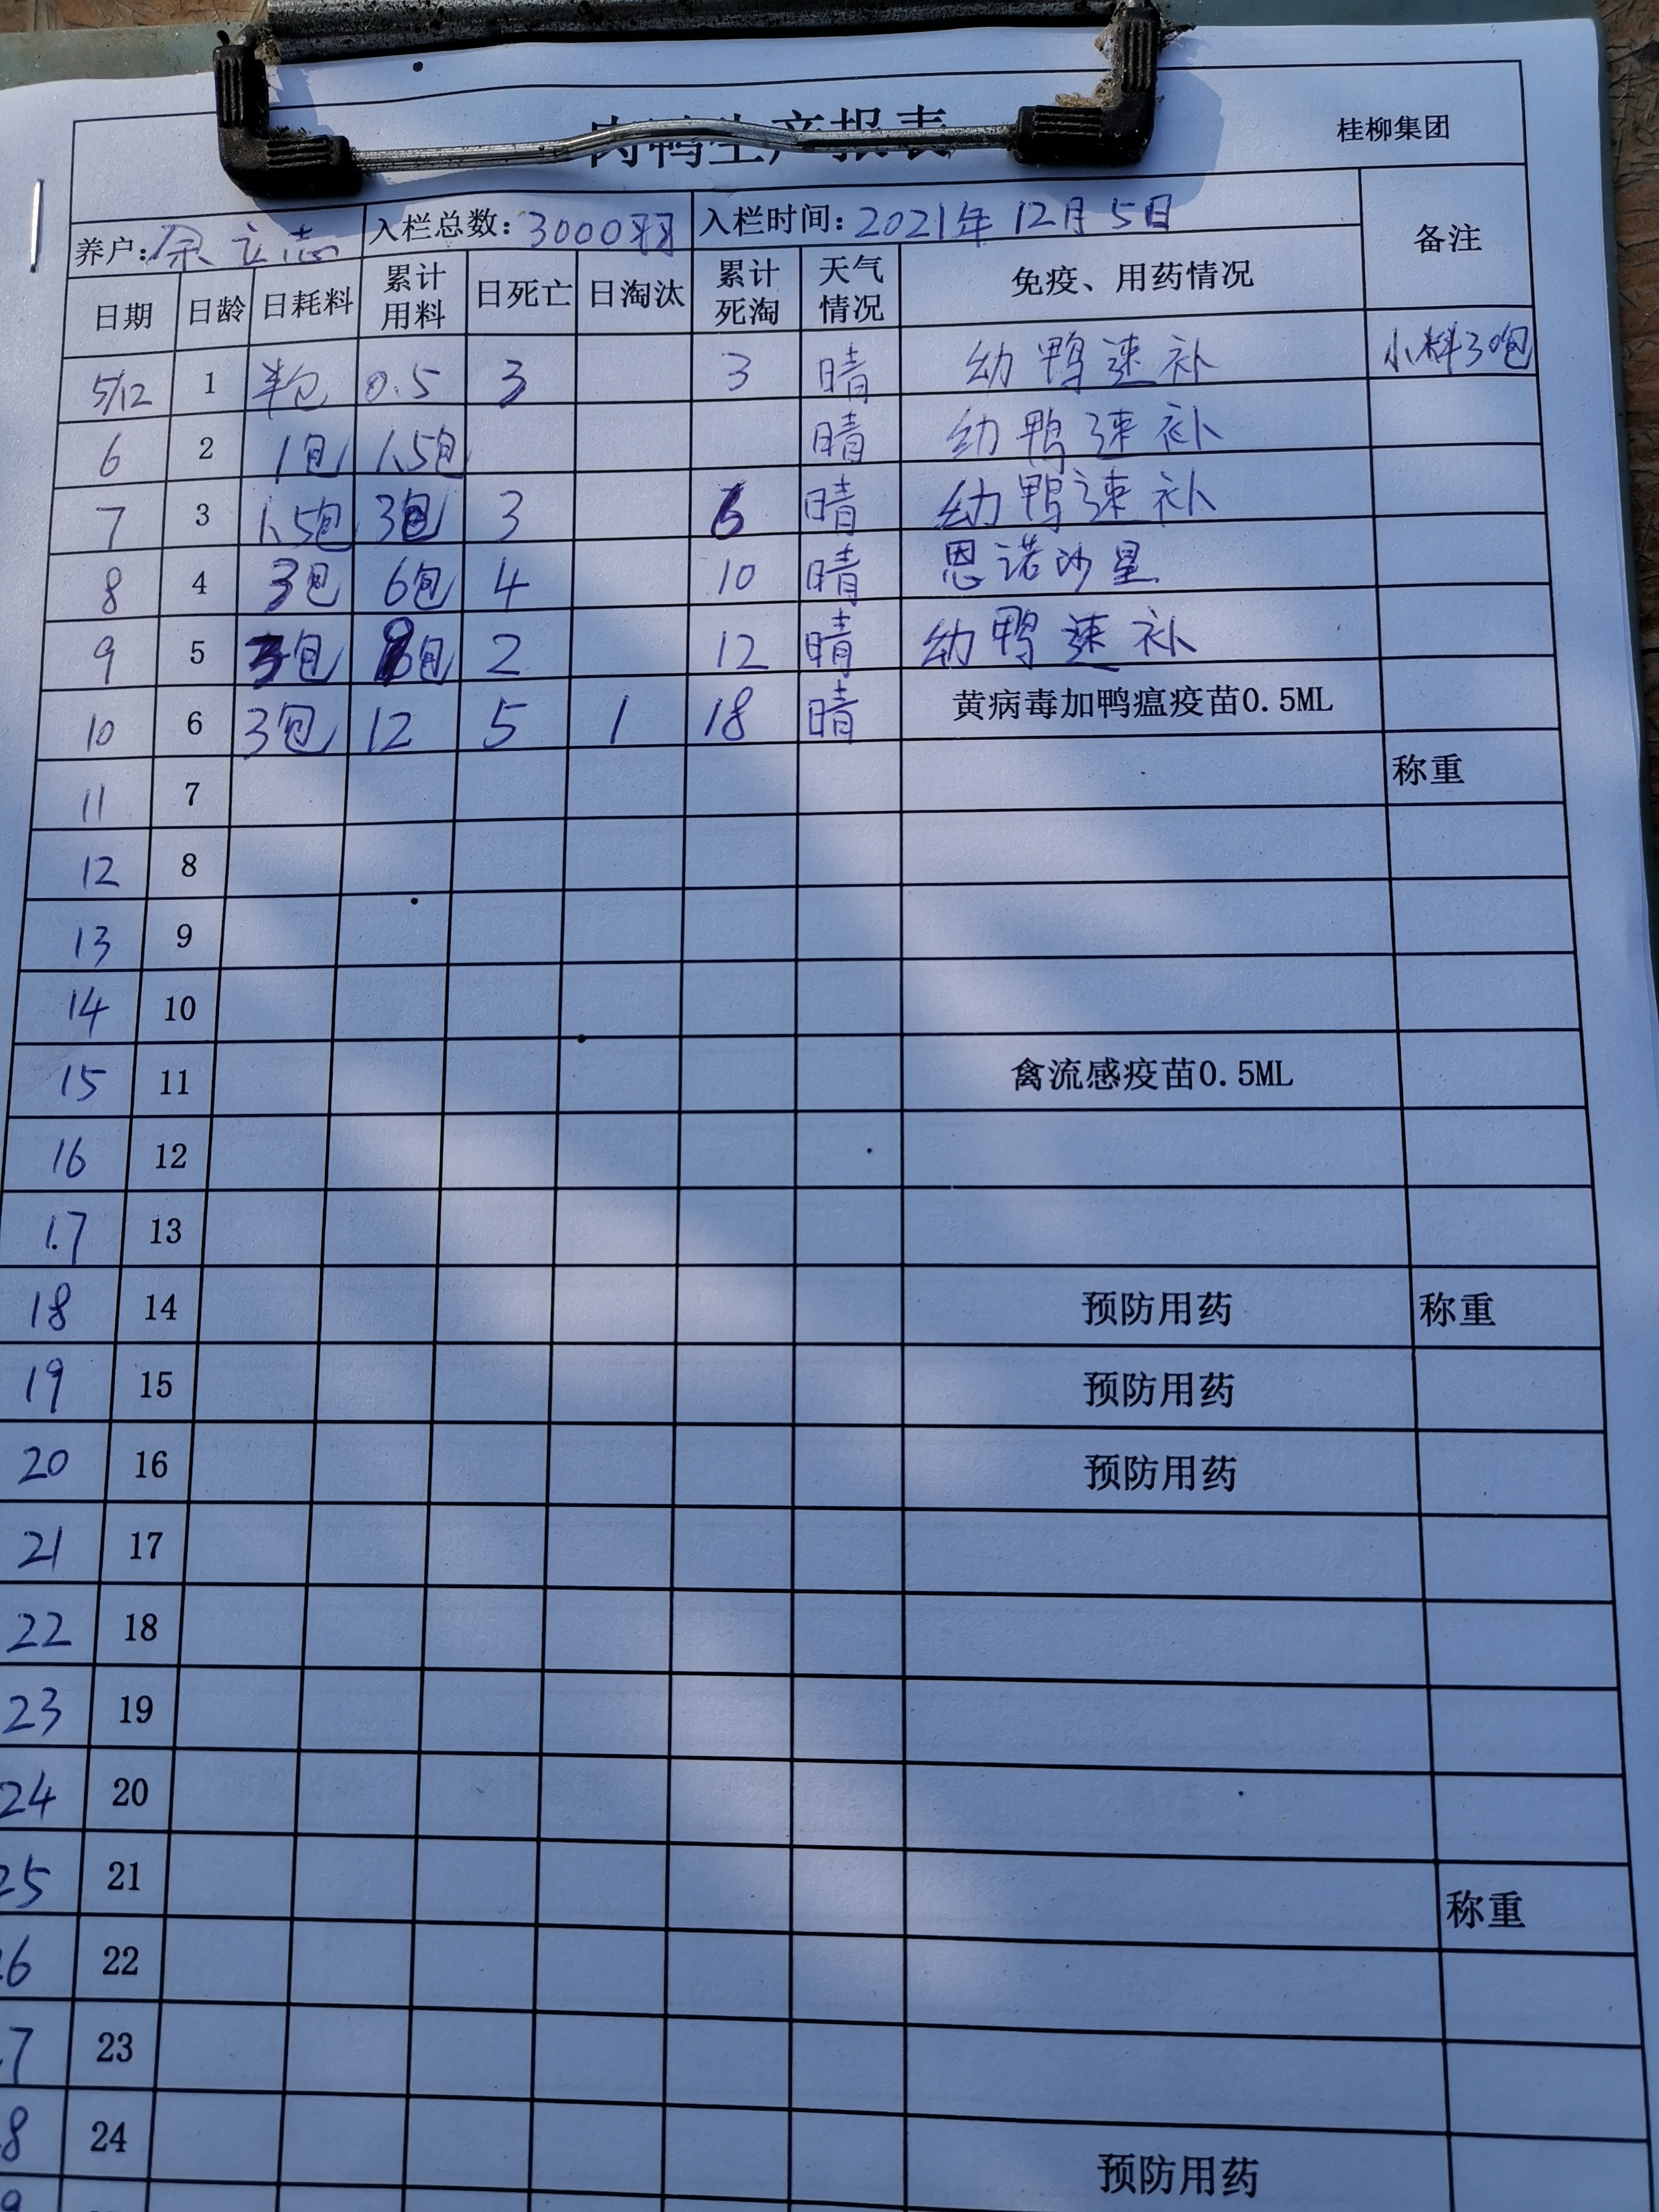 肉鸭生产报表 桂柳集团
养户:余立志 入栏总数:3000羽 入栏时间:2021年12月5日 备注
日期 日龄 日耗料 累计用料 日死亡 日淘汰 累计死淘 天气情况 免疫、用药情况
5/12 1 半包 0.5 3 3 晴 幼鸭速补 小料30包
6 2 1包 1.5包 晴 幼鸭速补
7 3 1.5包 3包 3 6 晴 幼鸭速补
8 4 3包 6包 4 10 晴 恩诺沙星
9 5 3包 包 2 12 晴 幼鸭速补
10 6 3包 12 5 1 18 晴 黄病毒加鸭瘟疫苗0.5ML
11 7 称重
12 8
13 9
14 10
15 11 禽流感疫苗0.5ML
16 12
17 13
18 14 预防用药 称重
19 15 预防用药
20 16 预防用药
21 17
22 18
23 19
24 20
25 21 称重
6 22
7 23
8 24 预防用药
9